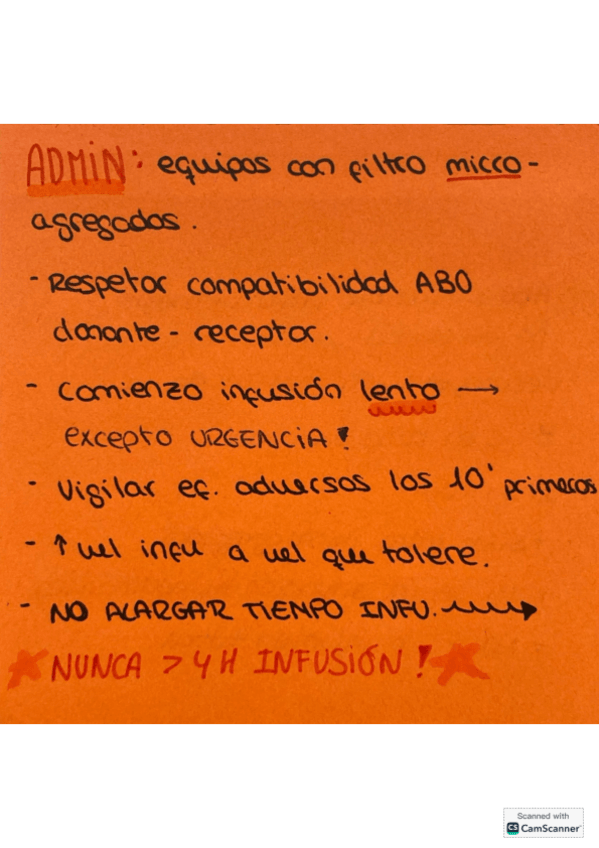 ADMIN: equipos con filtro micro-
agregados.
- Respetar compatibilidad ABO
donante - receptor.
- Comienzo infusión lento →
excepto URGENCIA!
- Vigilar ef. adversos los 10' primeros
- ↑ vel infu a vel que tolere.
- NO ALARGAR TIEMPO INFU. →
NUNCA > 4H INFUSIÓN!
Scanned with
CS CamScanner